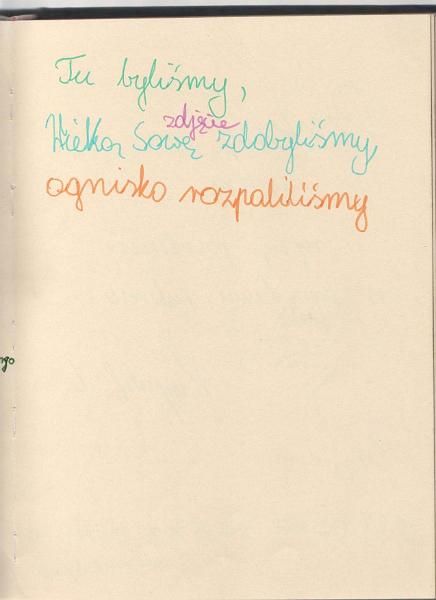 Tu byliśmy,
zdjęcie
Wielką Sowę zdobyliśmy,
ognisko rozpaliliśmy
ngo